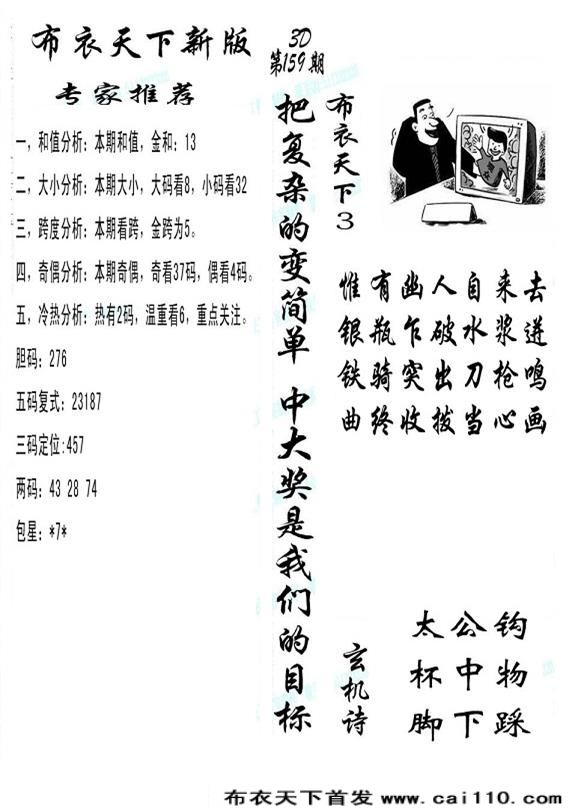 布衣天下新版
专家推荐
一,和值分析:本期和值,金和:13
二,大小分析:本期大小,大码看8,小码看32
三,跨度分析:本期看跨,金跨为5。
四,奇偶分析:本期奇偶,奇看37码,偶看4码。
五,冷热分析:热有2码,温重看6,重点关注。
胆码:276
五码复式:23187
三码定位:457
两码:43 28 74
包星:*7*
3D
第159期
把复杂的变简单 中大奖是我们的目标
布衣天下3
惟有幽人自来去
银瓶乍破水浆迸
铁骑突出刀枪鸣
曲终收拨当心画
玄机诗
太公钩
杯中物
脚下踩
布衣天下首发 www.cai110.com